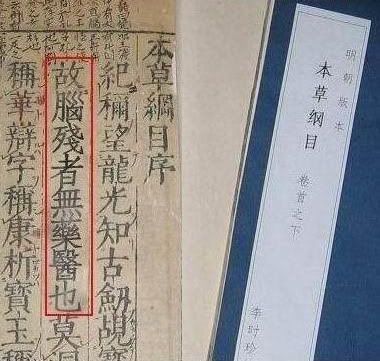 明朝版本
本草纲目
卷首之下
李时珍
本草綱目序
紀稱望龍光知古劍覘寶
故腦殘者無藥醫也莫
稱華辯字稱康析寶玉稱